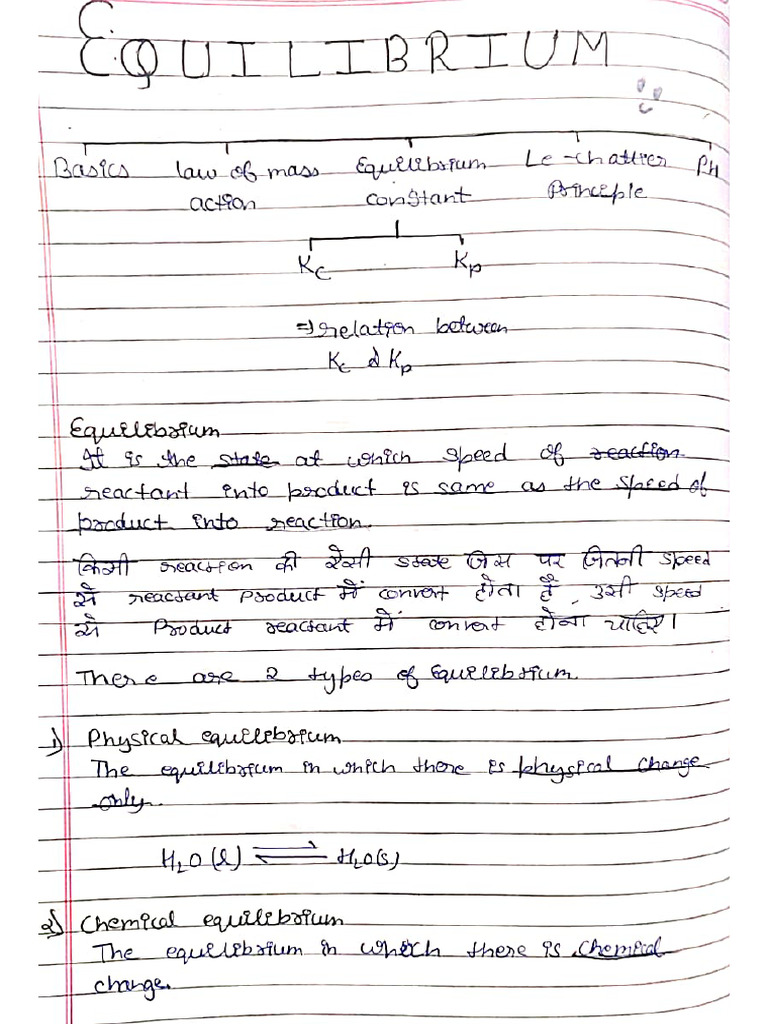 EQUILIBRIUM
Basics law of mass Equilibrium Le-chatlier PH
action constant Principle
Kc Kp
⇒ relation between
Kc & Kp
Equilibrium
It is the state at which speed of reaction
reactant into product is same as the speed of
product into reaction.
किसी reaction की ऐसी state जिस पर जितनी speed
से reactant Product में convert होता है, उसी speed
से Product reactant में convert होना चाहिए।
There are 2 types of Equilibrium.
1) Physical equilibrium
The equilibrium in which there is physical change
only.
H₂O(l) ⇌ H₂O(s)
2) Chemical equilibrium
The equilibrium in which there is chemical
change.